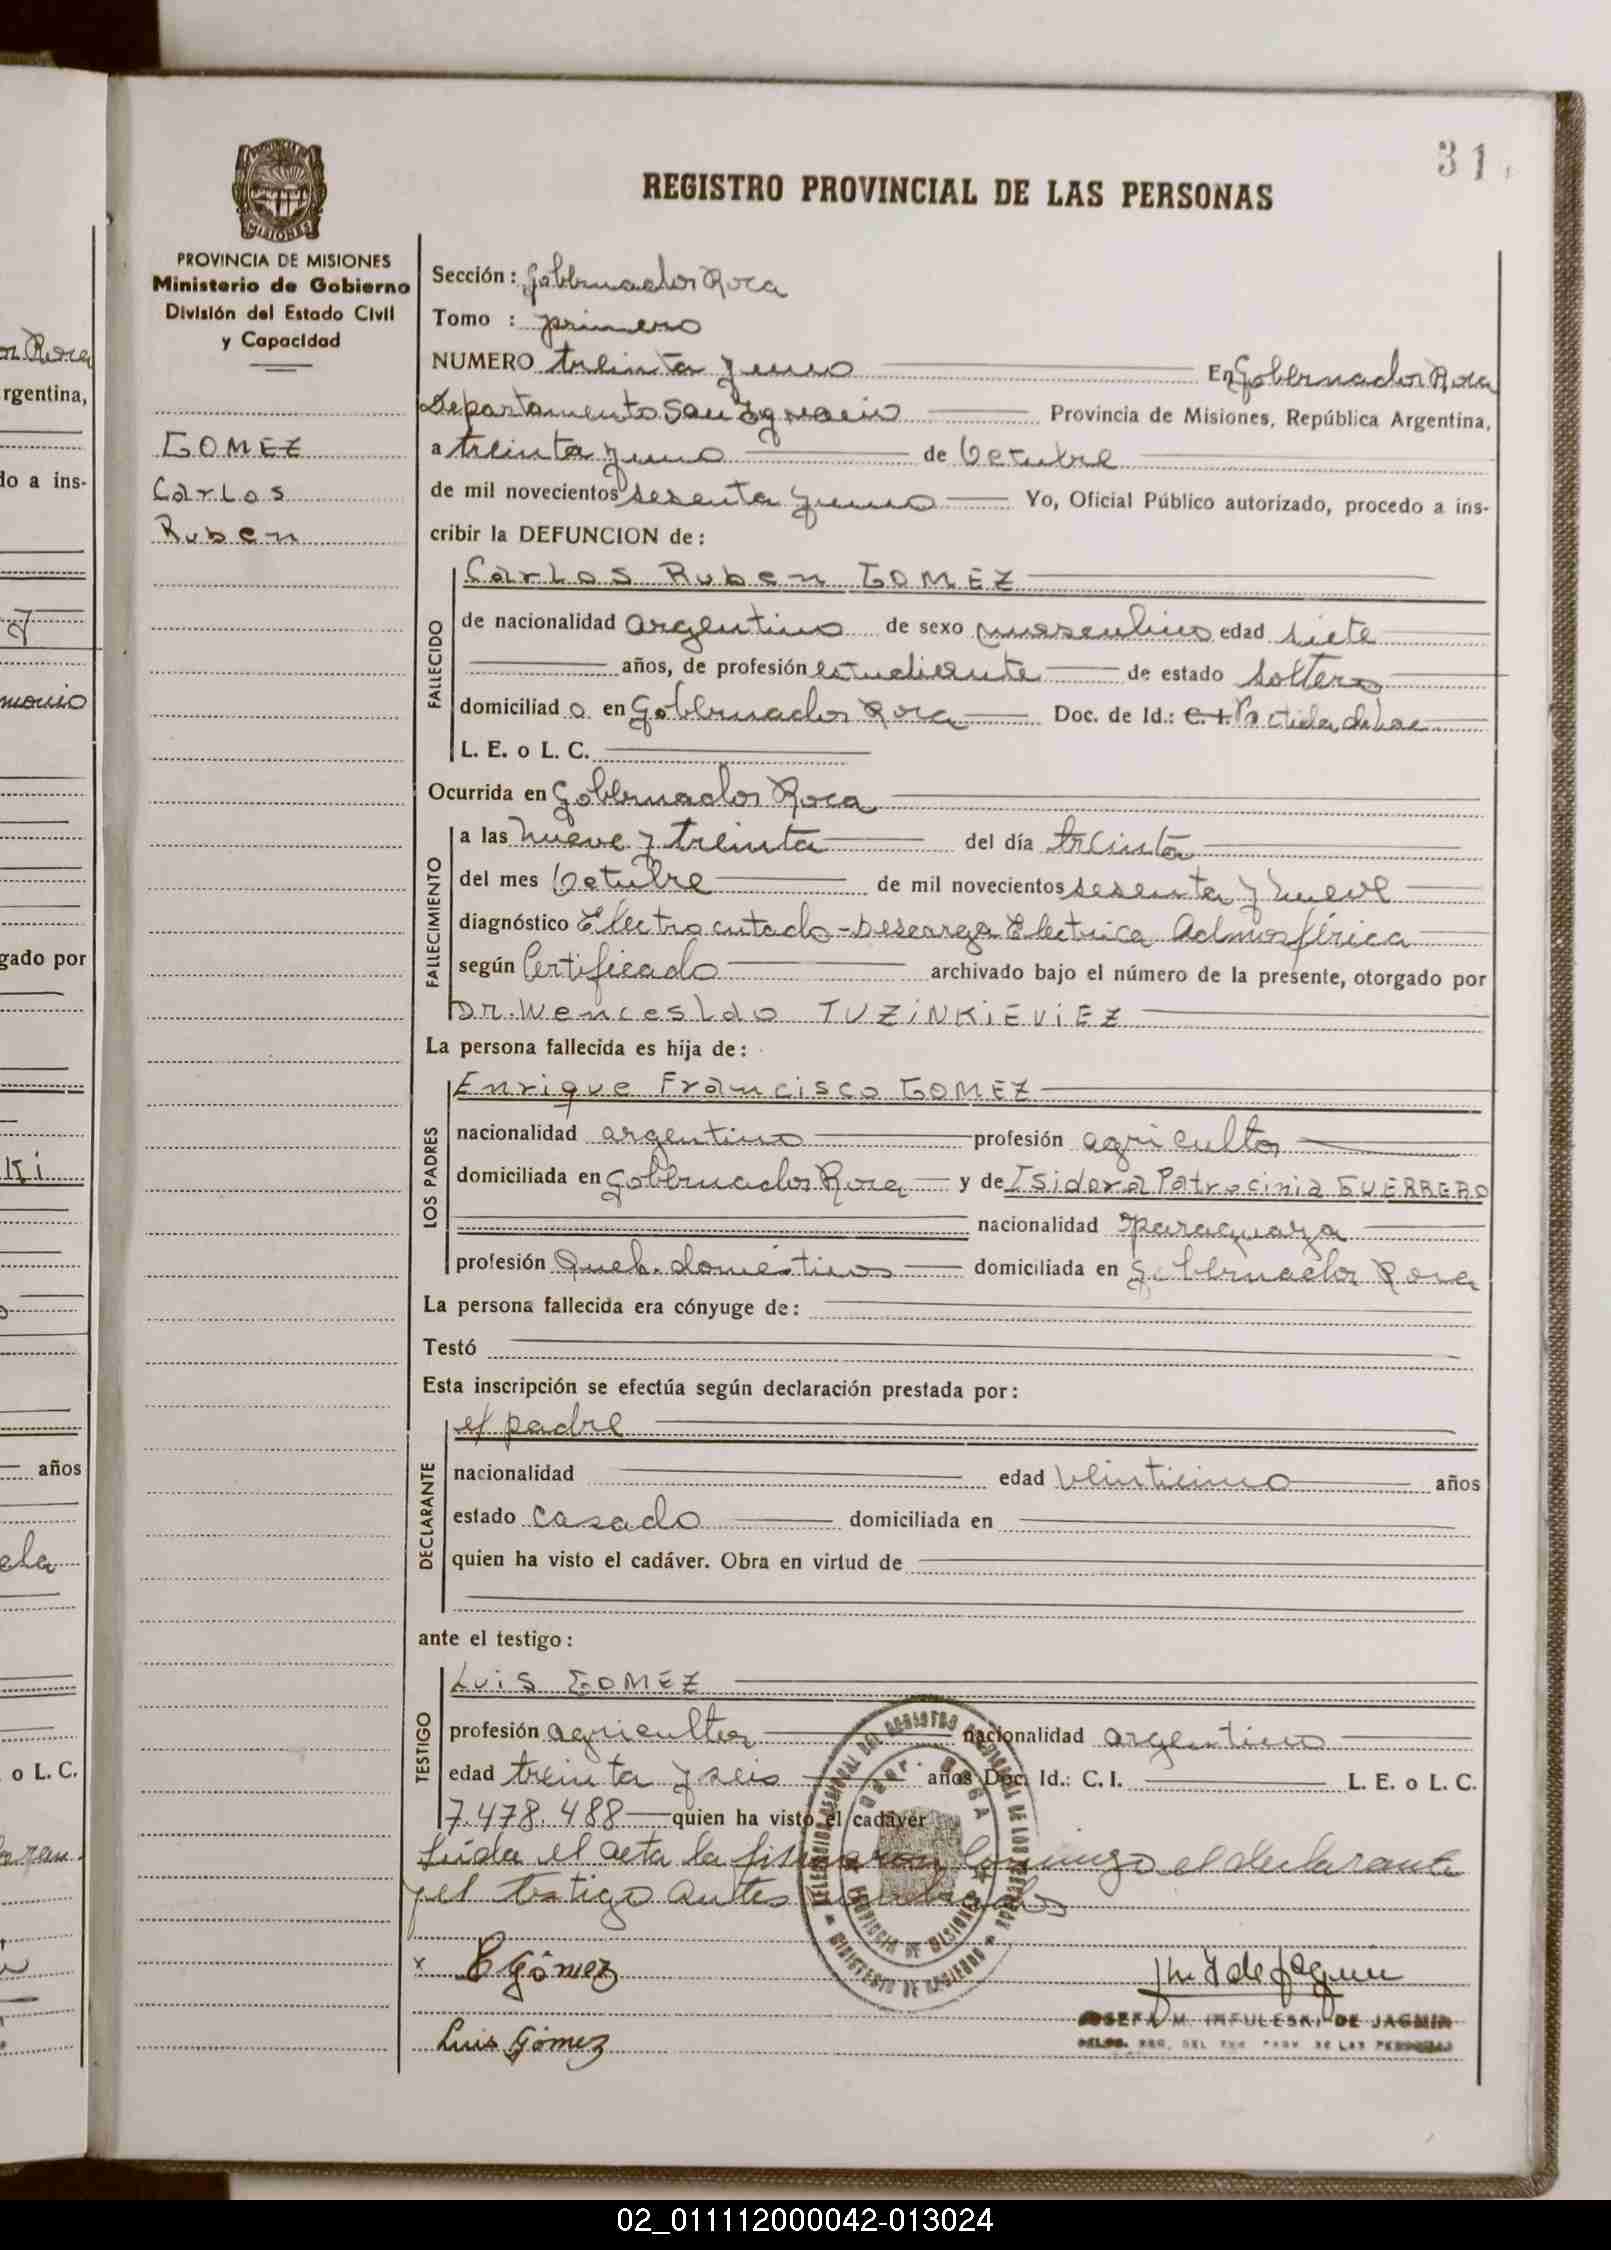 31
REGISTRO PROVINCIAL DE LAS PERSONAS
PROVINCIA DE MISIONES
Ministerio de Gobierno
División del Estado Civil
y Capacidad
GOMEZ
Carlos
Ruben
Sección: Gobernador Roca
Tomo : primero
NUMERO treinta y uno En Gobernador Roca
Departamento San Ignacio Provincia de Misiones, República Argentina,
a treinta y uno de Octubre
de mil novecientos sesenta y Yo, Oficial Público autorizado, procedo a ins-
cribir la DEFUNCION de:
FALLECIDO
Carlos Ruben GOMEZ
de nacionalidad argentino de sexo masculino edad siete
años, de profesión estudiante de estado soltero
domiciliado en Gobernador Roca Doc. de Id.: C. I. Partida de
L. E. o L. C.
Ocurrida en Gobernador Roca
FALLECIMIENTO
a las nueve y treinta del día treinta
del mes Octubre de mil novecientos sesenta y nueve
diagnóstico Electrocutado - Descarga Electrica Admosférica
según Certificado archivado bajo el número de la presente, otorgado por
Dr. Wenceslao TUZINKIEVIEZ
La persona fallecida es hija de:
LOS PADRES
Enrique Francisco GOMEZ
nacionalidad argentino profesión agricultor
domiciliada en Gobernador Roca y de Isidora Patrocinia GUERRERO
nacionalidad paraguaya
profesión Queh. domésticos domiciliada en Gobernador Roca
La persona fallecida era cónyuge de:
Testó
Esta inscripción se efectúa según declaración prestada por:
DECLARANTE
el padre
nacionalidad edad años
estado casado domiciliada en
quien ha visto el cadáver. Obra en virtud de
ante el testigo:
TESTIGO
Luis GOMEZ
profesión agricultor nacionalidad argentino
edad treinta y seis años Doc. Id.: C. I. L. E. o L. C.
7.478.488 quien ha visto el cadáver
Leida el acta la firmaron conmigo el declarante
y el testigo antes
x E Gómez
Luis Gómez
JOSEFA M. IMFULESKI DE JAGMIN
PROVINCIA DE MISIONES
MINISTERIO DE GOBIERNO
rgentina,
do a ins-
gado por
años
o L. C.
02_011112000042-013024